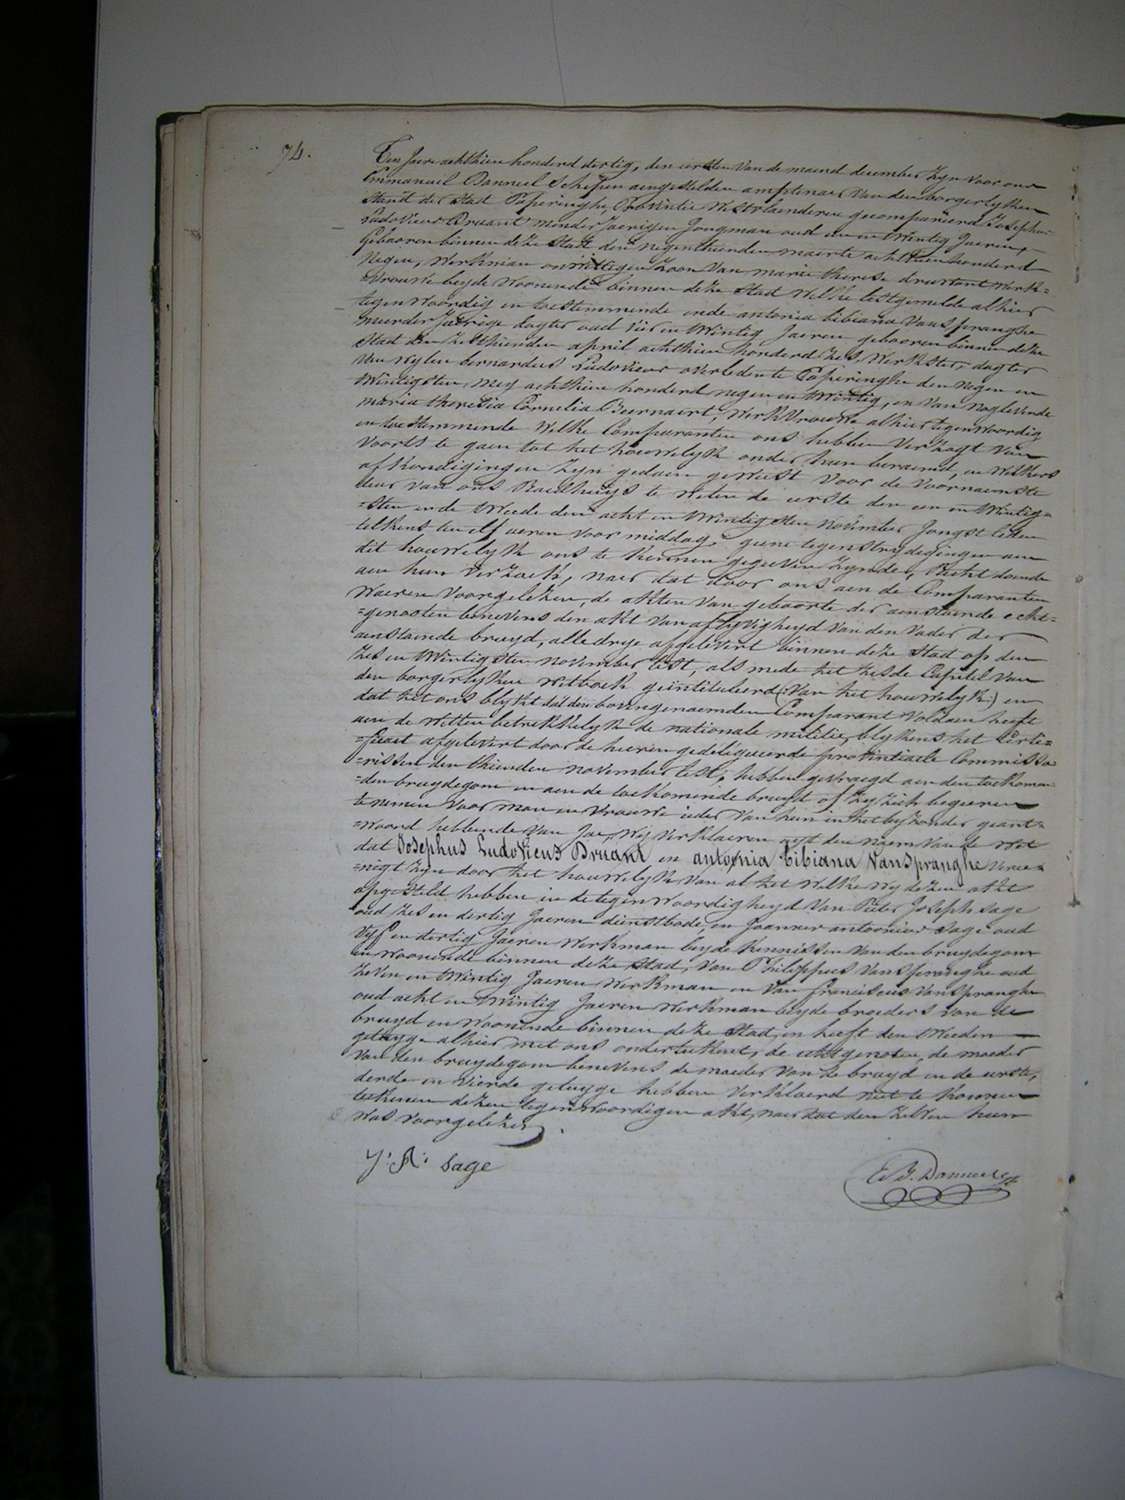 74.
Den Jaere achthien honderd dertig, den eersten van de maend december zyn voor ons
Emmanuel Banneel Schepen aengestelden amptenaer van den borgerlyken
Stand der Stad Poperinghe, Provintie Westvlaenderen gecompareerd Josephus
Ludovicus Druant minderjaerigen Jongman oud een en twintig Jaeren,
Gebooren binnen deze Stadt den negenthienden maerte achthien honderd
Negen, Werkman onwettigen Zoon van marie therese druant Werk=
vrouwe beyde Woonende binnen deze Stad Welke lestgemelde alhier
tegenwoordig en toestemmende ende antonia bibiana Vanspranghe
meerderjarige dogter oud vier en twintig Jaeren gebooren binnen deze
Stad den zesthienden april achthien honderd zes, Werkster, dogter
van wylen bernardus Ludovicus overleden te Poperinghe den negen en
twintigsten mey achthien honderd negen en twintig, en van noglevende
maria theresia Cornelia Beernaert, Werkvrouwe alhier tegenwoordig
en toestemmende Welke Comparanten ons hebben verzogt van
voorts te gaen tot het houwelyk onder hun beraemd, en welkers
afkondigingen zyn gedaen geweest voor de voornaemste
deur van ons Raedhuys te weten de eerste den een en twintig=
=sten ende tweede den acht en twintigsten november Jongstleden
telkens ten elf ueren voormiddag. geene tegenstrydigingen aen
dit houwelyk ons te kennen gegeven zynde, Recht doende
aen hun verzoek, naer dat door ons aen de Comparanten
Waeren voorgelezen, de akten van geboorte der aenstaende echt=
=genooten benevens den akt van aflyvigheyd van den vader der
aenstaende bruyd, alle drye afgelevert binnen deze Stad op den
zes en twintigsten november lest, als mede het zesde Capittel van
den borgerlyken Wetboek geintituleerd (: van het houwelyk :) en
dat het ons blykt dat den bovengenaemden Comparant voldaen heeft
aen de Wetten betrekkelyk de nationale militie, blykens het Certi=
=ficaet afgelevert door de heeren gedelegueerde provintiaele Commissa=
=rissen den thienden november lest, hebben gevraegd aen den toekomen=
=den bruydegom en aen de toekomende bruyd of zy zich begeeren
te nemen voor man en vrouwe ieder van hun in het byzonder geant=
=woord hebbende van Jae, Wy verklaeren uyt den naem van de Wet
dat Josephus Ludovicus Druant en antonia bibiana Vanspranghe veree=
=nigt zyn door het houwelyk van al het welke wy dezen akt
opgesteld hebben in de tegenwoordigheyd van Pieter Joseph Sage
oud zes en dertig Jaeren dienstbode, en Joannes antonius Sage oud
vyf en dertig Jaeren Werkman beyde kennissen van den bruydegom
en woonende binnen deze Stad, van Philippus Vanspranghe oud
zeven en twintig Jaeren Werkman en van franciscus Vanspranghe
oud acht en twintig Jaeren Werkman beyde broeders van de
bruyd en woonende binnen deze Stad, en heeft den tweeden
getuyge alhier met ons onderteekent, de echtgenoten, de moeder
van den bruydegom benevens de moeder van de bruyd en de eerste,
derde en vierde getuyge hebben verklaerd niet te konnen
teekenen dezen tegenwoordigen akt, naer dat den zelven hun
was voorgelezen.
J: A: Sage
E. J. Banneel